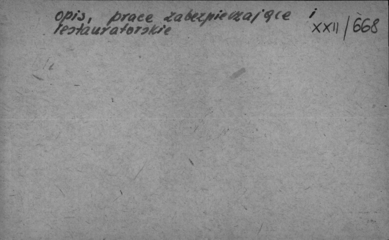 opis, prace zabezpieczające i
restauratorskie
XXII/668